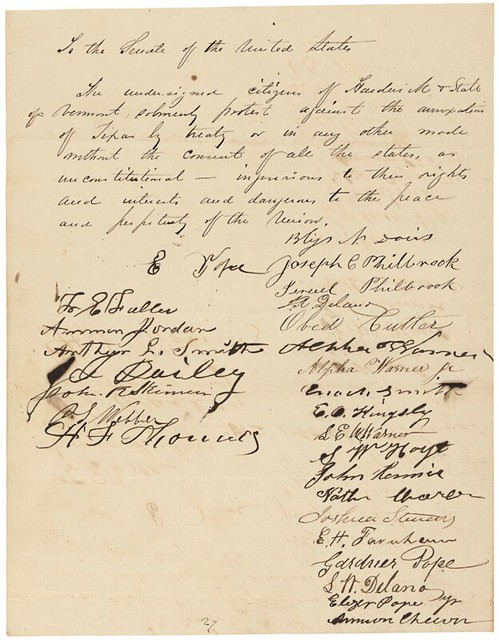 To the Senate of the United States
The undersigned citizens of Hardwick & State
of Vermont, solemnly protest against the annexation
of Texas by treaty or in any other mode
without the consent of all the states, as
unconstitutional — injurious to their rights
and interests and dangerous to the peace
and perpetuity of the Union.
E Pope
Fr E Fuller
Ammon Jordan
Arthur L. Smith
J Bailey
John
C S Webber
H F Thomas
Bliss N Davis
Joseph C Philbrook
Philbrook
Delano
Obed Cutler
Alpha Warner
Alpha Warner Jr
Enoch Smith
E. O. Kingsly
S E Warner
S W Hoyt
John
Nathl
Joshua Stevens
E. H. Farnham
Gardner Pope
S. W. Delano
Elizer Pope Jr
27